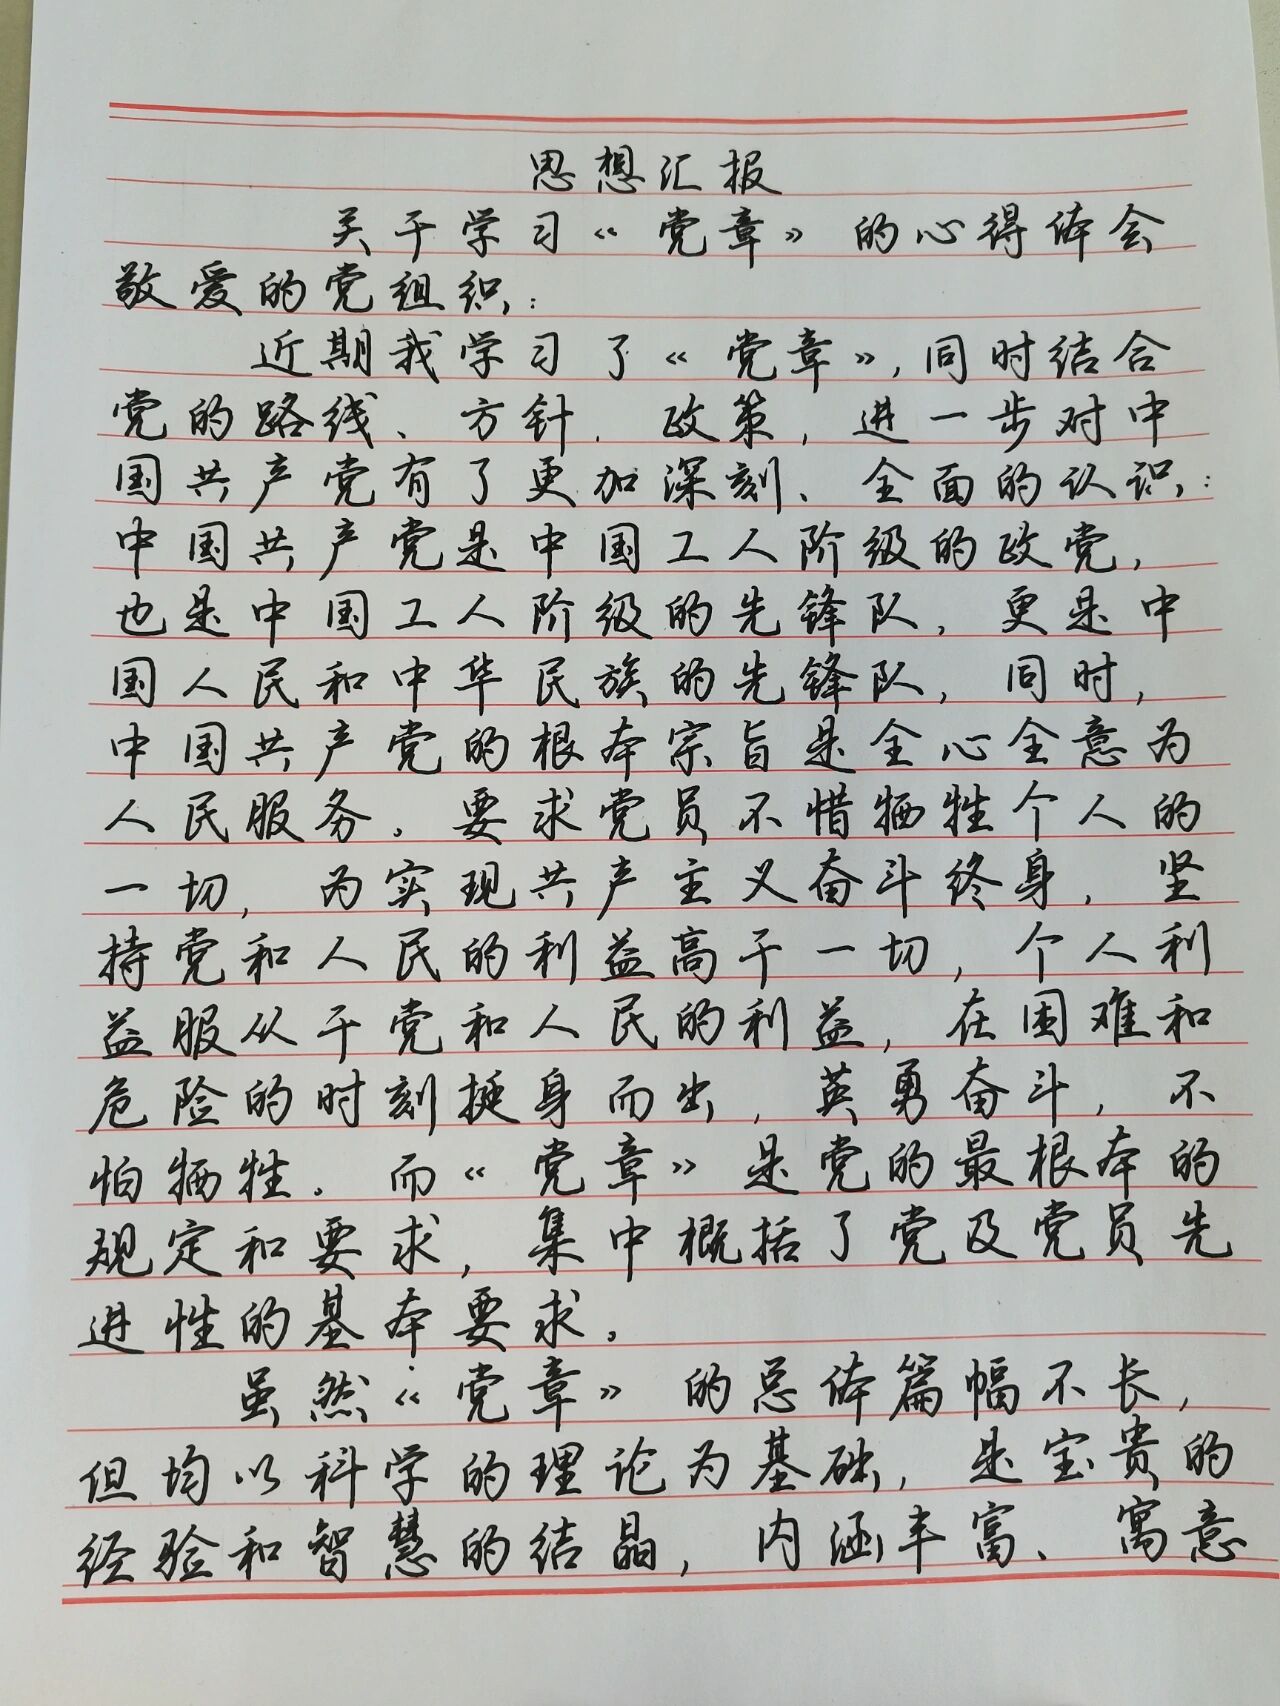 思想汇报
关于学习《党章》的心得体会
敬爱的党组织:
近期我学习了《党章》,同时结合
党的路线、方针、政策,进一步对中
国共产党有了更加深刻、全面的认识:
中国共产党是中国工人阶级的政党,
也是中国工人阶级的先锋队,更是中
国人民和中华民族的先锋队,同时,
中国共产党的根本宗旨是全心全意为
人民服务。要求党员不惜牺牲个人的
一切,为实现共产主义奋斗终身,坚
持党和人民的利益高于一切,个人利
益服从于党和人民的利益,在困难和
危险的时刻挺身而出,英勇奋斗,不
怕牺牲。而《党章》是党的最根本的
规定和要求,集中概括了党及党员先
进性的基本要求。
虽然《党章》的总体篇幅不长,
但均以科学的理论为基础,是宝贵的
经验和智慧的结晶,内涵丰富、寓意